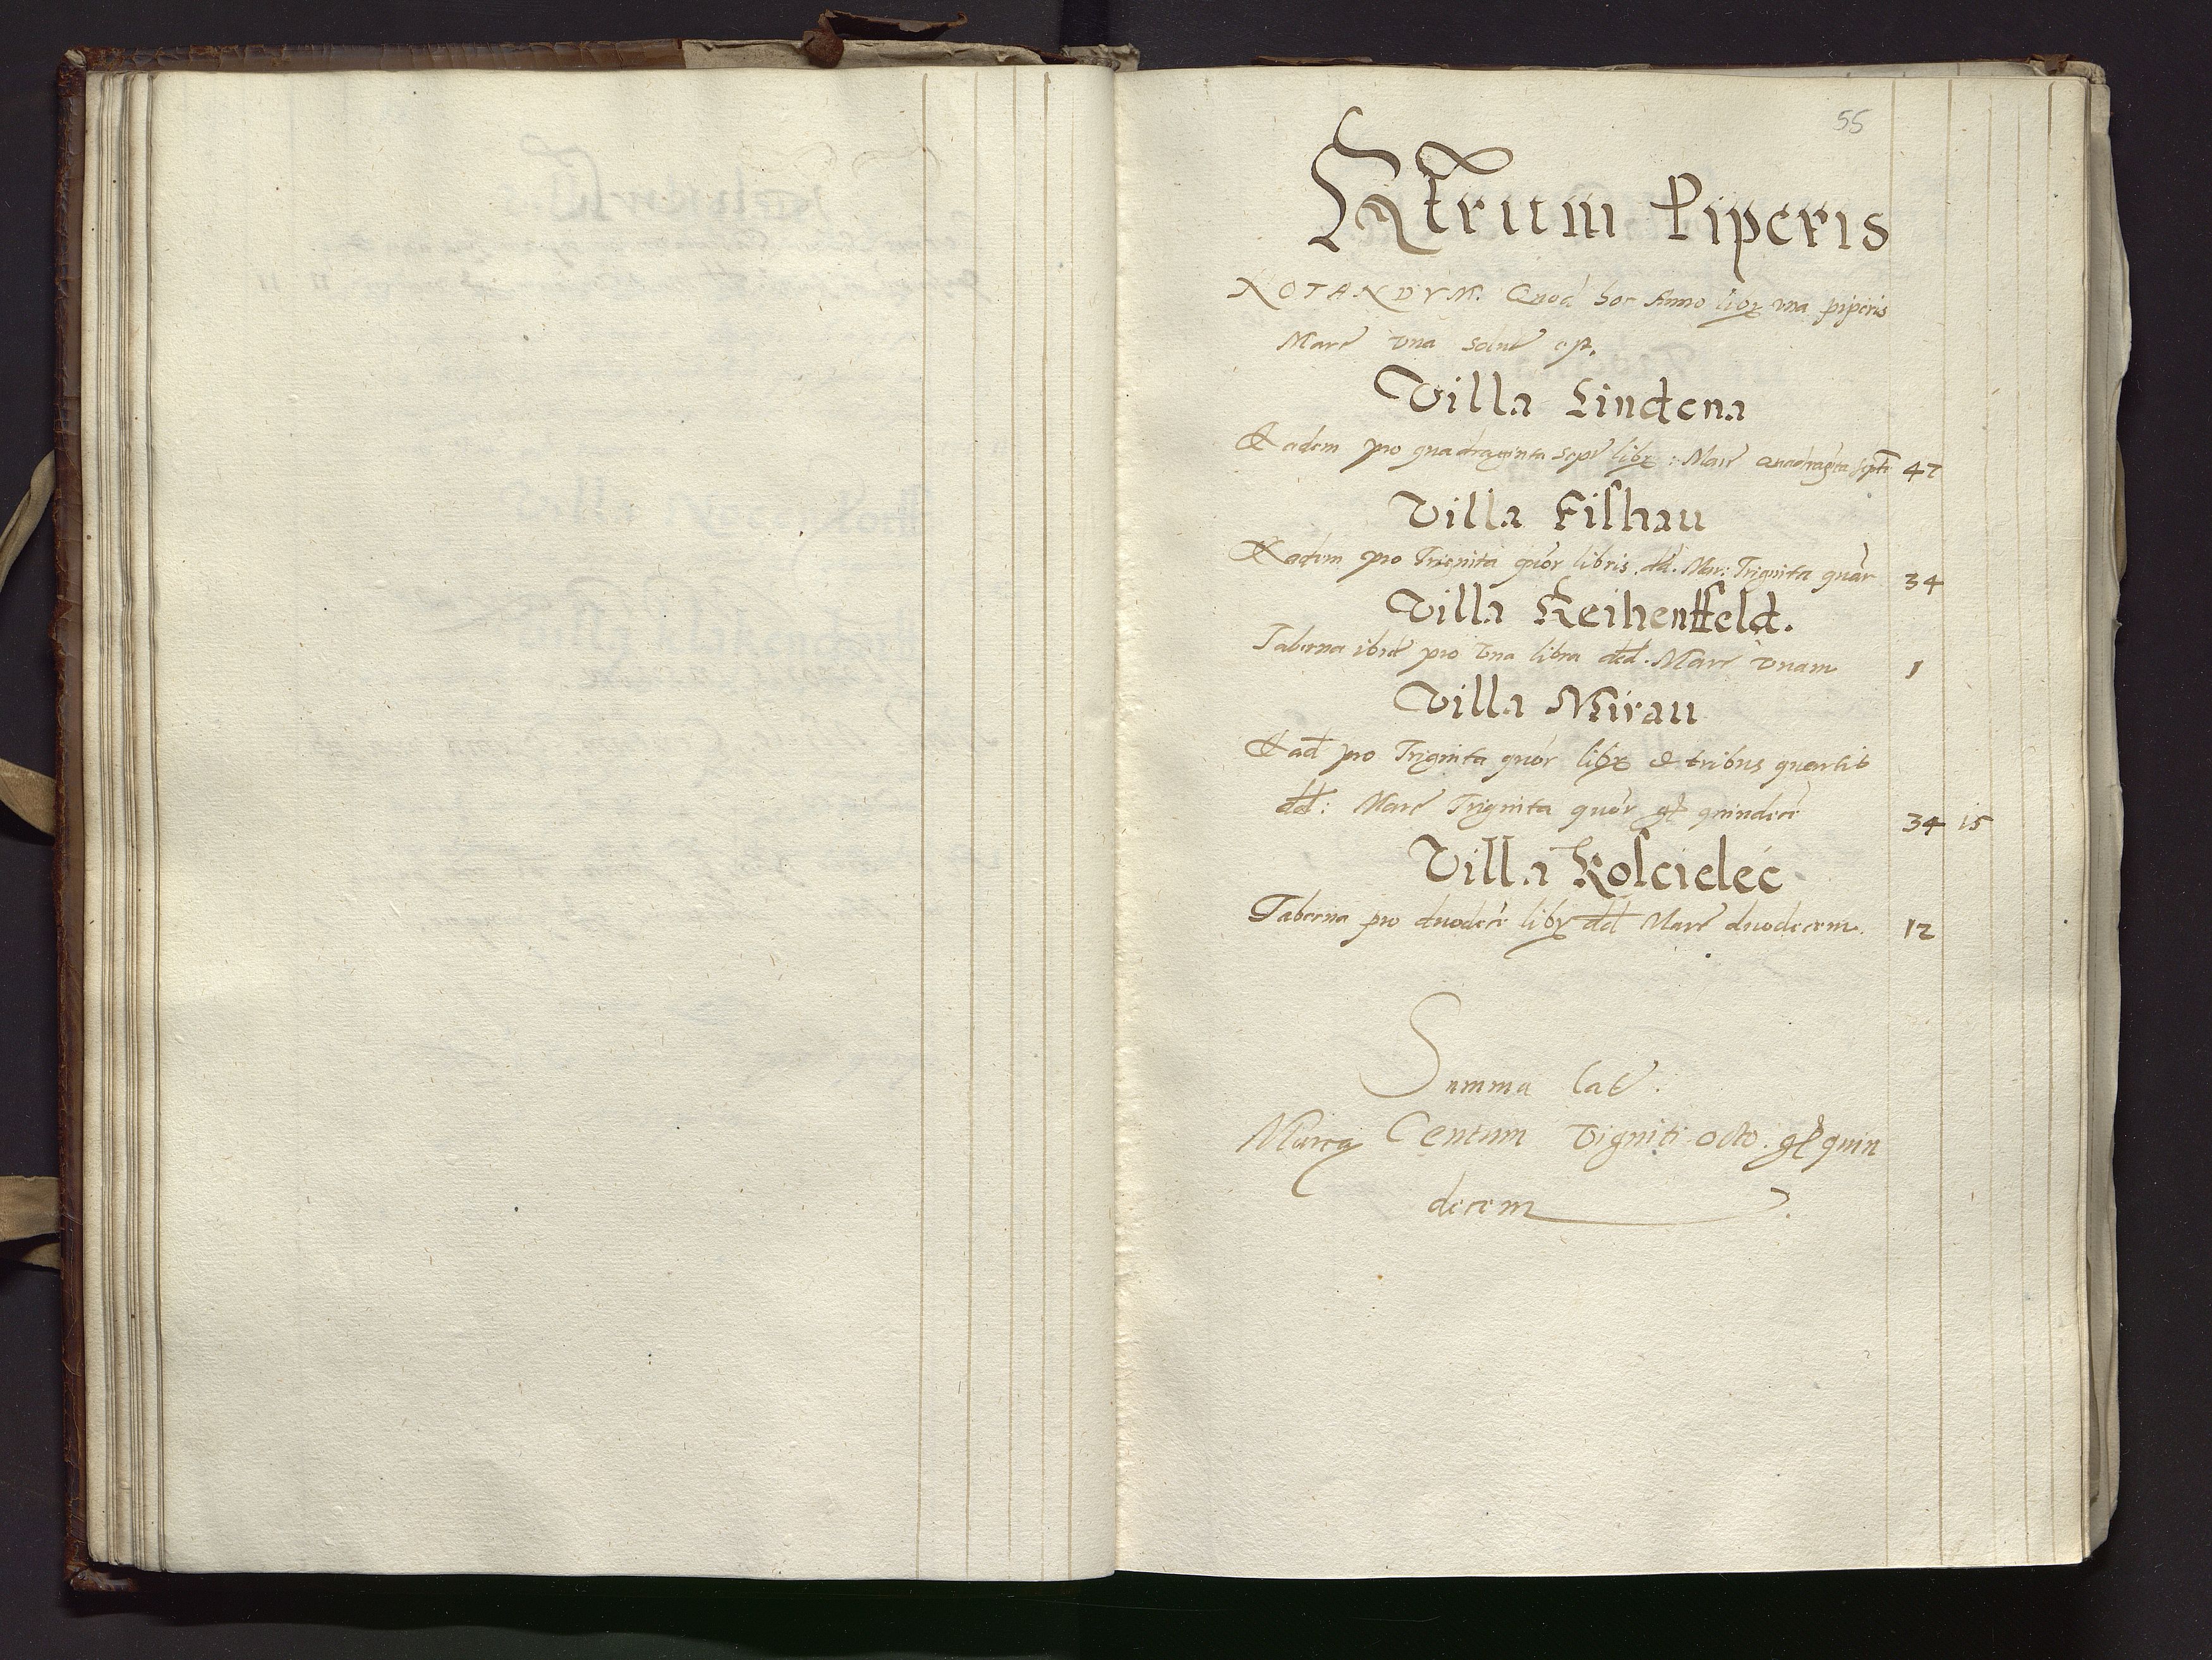 55
Rtrum Piperis
NOTANDVM. Quod hoc Anno libr una piperis
Marc una solut est.
Villa Lindena
Eadem pro quadraginta sept libr: Marc quadraginta septe 47
Villa Filhau
Eadem pro Triginta quor libris dd. Mar: Triginta quor 34
Villa Reihenffeld.
Taberna ibid pro una libra dd. Marc unam 1
Villa Mirau
Ead pro Triginta quor libr & tribus quartis
dd: Marc Triginta quor gr quindece 34 15
Villa Koscielec
Taberna pro duodece libr dd Marc duodecem. 12
Summa lat.
Marcę Centum Viginti octo. gr quin
decem